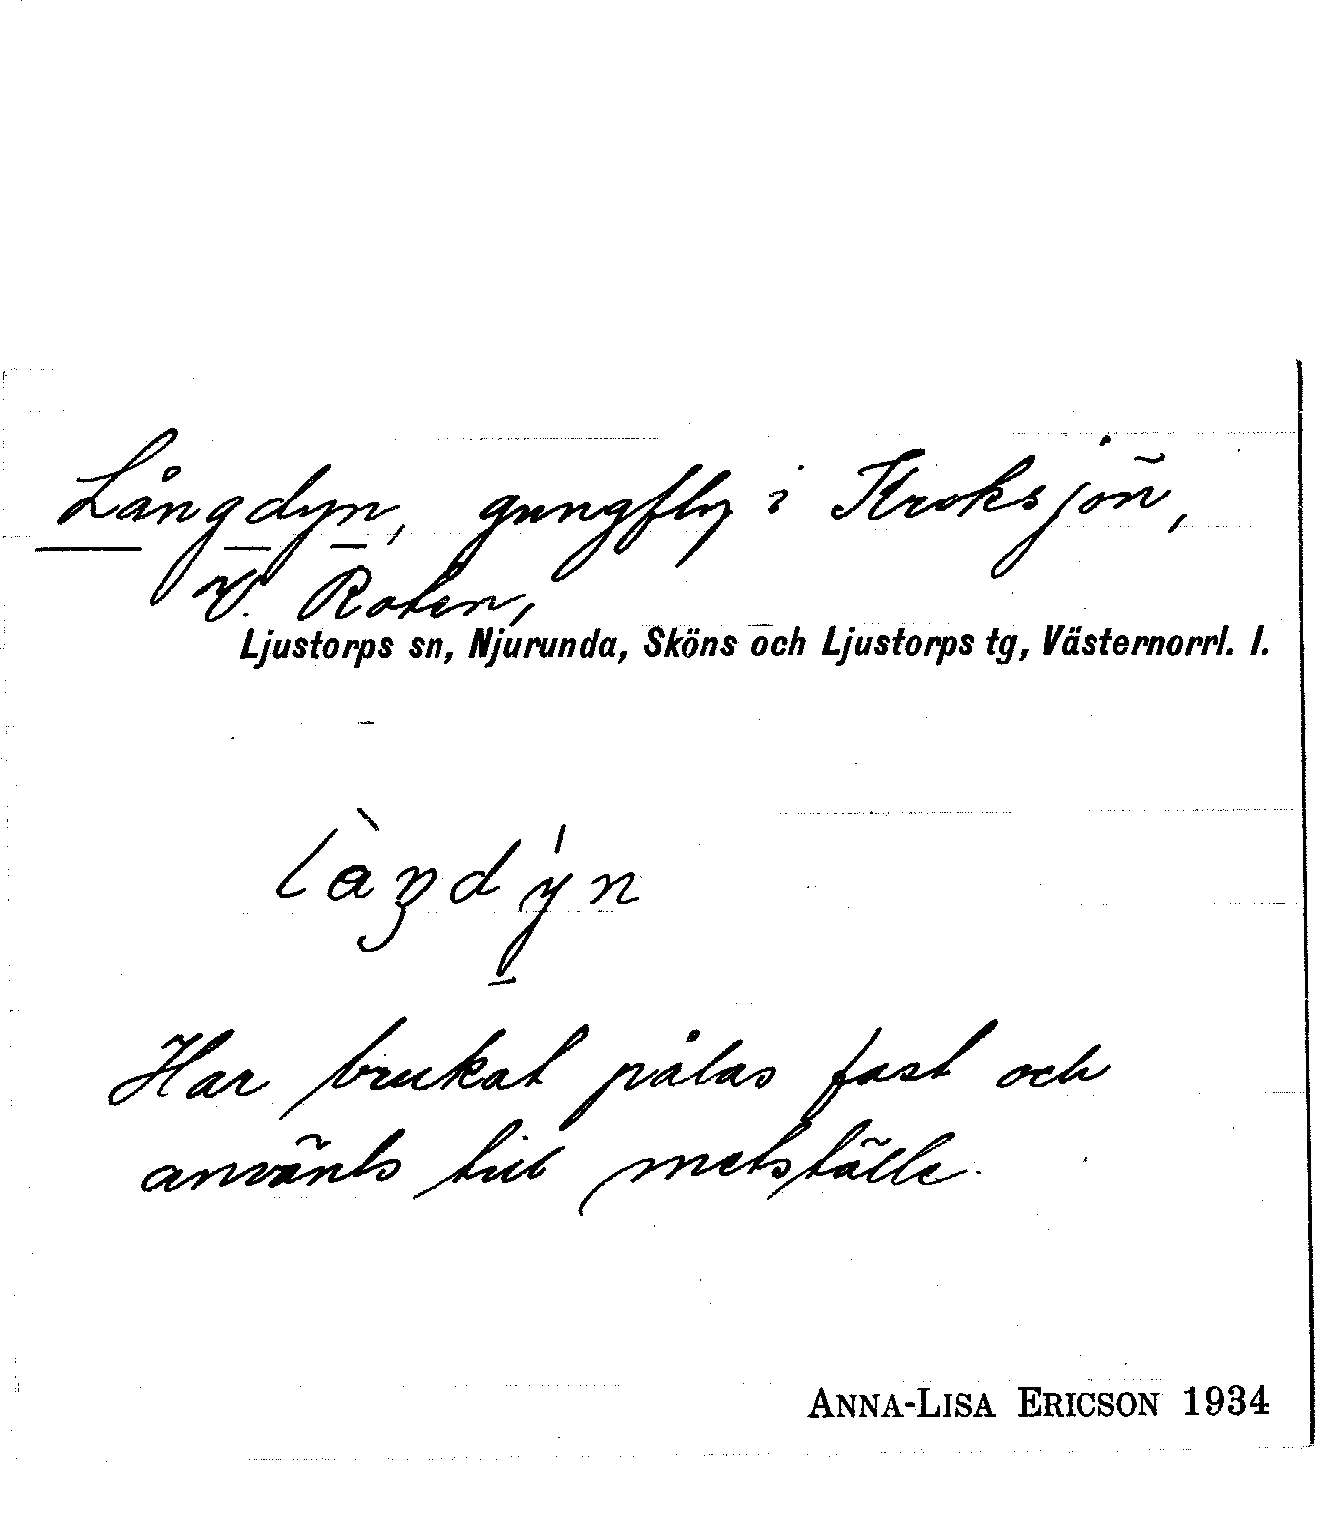 Långdyn, gungfly i Kroksjön,
V. Roten,
Ljustorps sn, Njurunda, Sköns och Ljustorps tg, Västernorrl. l.
làŋdý̱n
Har brukat pålas fast och
använts till metställe.
ANNA-LISA ERICSON 1934